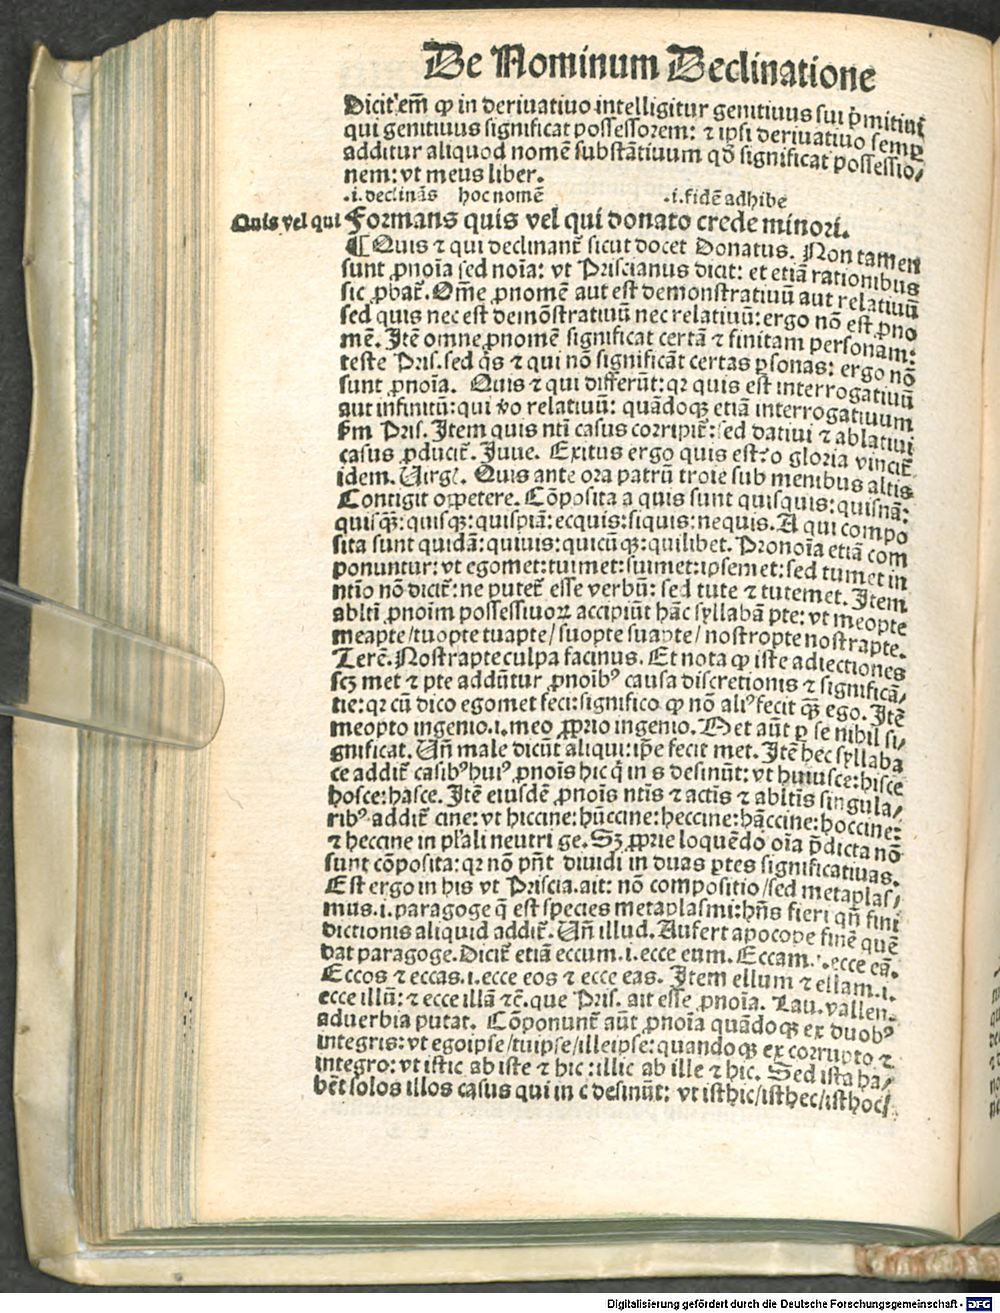 De Nominum Declinatione
Dicit̃ em̃ ꝙ in deriuatiuo intelligitur genitiuus sui p̃mitiui
qui genitiuus significat possessorem: ⁊ ipsi deriuatiuo semꝑ
additur aliquod nomẽ substãtiuum qđ significat possessio/
nem: vt meus liber.
.i. declinãs hoc nomẽ .i. fidẽ adhibe
Quis vel qui Formans quis vel qui donato crede minori.
¶ Quis ⁊ qui declinant̃ sicut docet Donatus. Non tamen
sunt ꝓnoĩa sed noĩa: vt Priscianus dicit: et etiã rationibus
sic ꝓbat̃. Om̃e ꝓnomẽ aut est demonstratiuũ aut relatiuũ
sed quis nec est demõstratiuũ nec relatiuũ: ergo nõ est ꝓno
mẽ. Itẽ omne ꝓnomẽ significat certã ⁊ finitam personam:
teste Pris. sed q̃s ⁊ qui nõ significãt certas ꝑsonas: ergo nõ
sunt ꝓnoĩa. Quis ⁊ qui differũt: qꝛ quis est interrogatiuũ
aut infinitũ: qui v̊o relatiuũ: quãdoqꝫ etiã interrogatiuum
ẜm Pris. Item quis nt̃i casus corripit̃: sed datiui ⁊ ablatiui
casus ꝓducit̃. Juue. Exitus ergo quis est: o gloria vincit̃
idem. Uirgĩ. Quis ante ora patrũ troie sub menibus altis
Contigit oppetere. Cõposita a quis sunt quisquis: quisnã:
quisq̃ꝫ: quisqꝫ: quispiã: ecquis: siquis: nequis. A qui compo
sita sunt quidã: quiuis: quicũqꝫ: quilibet. Pronoĩa etiã com
ponuntur: vt egomet: tuimet: suimet: ipsemet: sed tumet in
ntĩo nõ dicit̃: ne putet̃ esse verbũ: sed tute ⁊ tutemet. Item
ablt̃i ꝓnoĩm possessiuoꝝ accipiũt hãc syllabã pte: vt meopte
meapte/tuopte tuapte/ suopte suapte/ nostropte nostrapte.
Terẽ. Nostrapte culpa facinus. Et nota ꝙ iste adiectiones
scꝫ met ⁊ pte addũtur ꝓnoibꝰ causa discretionis ⁊ significã/
tie: qꝛ cũ dico egomet feci: significo ꝙ nõ aliꝰ fecit q̃ꝫ ego. Itẽ
meopto ingenio .i. meo ꝓprio ingenio. Met aũt ꝑ se nihil si/
gnificat. Uñ male dicũt aliqui: ip̃e fecit met. Itẽ hec syllaba
ce addit̃ casibꝰ huiꝰ ꝓnoĩs hic q̃ in s desinũt: vt huiusce: hisce
hosce: hasce. Itẽ eiusdẽ ꝓnoĩs nt̃is ⁊ actĩs ⁊ abltĩs singula/
ribꝰ addit̃ cine: vt hiccine: hũccine: heccine: hãccine: hoccine:
⁊ heccine in pl̃ali neutri ge. Sꝫ ꝓprie loquẽdo oĩa p̃dicta nõ
sunt cõposita: qꝛ nõ pñt diuidi in duas ꝑtes significatiuas.
Est ergo in his vt Priscia. ait: nõ compositio/sed metaplas/
mus .i. paragoge q̃ est species metaplasmi: hñs fieri qñ fini
dictionis aliquid addit̃. Uñ illud. Aufert apocope finẽ quẽ
dat paragoge. Dicit̃ etiã eccum .i. ecce eum. Eccam .i. ecce eã.
Eccos ⁊ eccas .i. ecce eos ⁊ ecce eas. Item ellum ⁊ ellam .i.
ecce illũ: ⁊ ecce illã ⁊c̃. que Pris. ait esse ꝓnoĩa. Lau. vallen.
aduerbia putat. Cõponunt̃ aũt ꝓnoĩa quãdoqꝫ ex duobꝰ
integris: vt egoipse/tuipse/illeipse: quandoqꝫ ex corrupto ⁊
integro: vt istic ab iste ⁊ hic: illic ab ille ⁊ hic. Sed ista ha/
bẽt solos illos casus qui in c desinũt: vt isthic/isthec/isthoc/
Digitalisierung gefördert durch die Deutsche Forschungsgemeinschaft - DFG